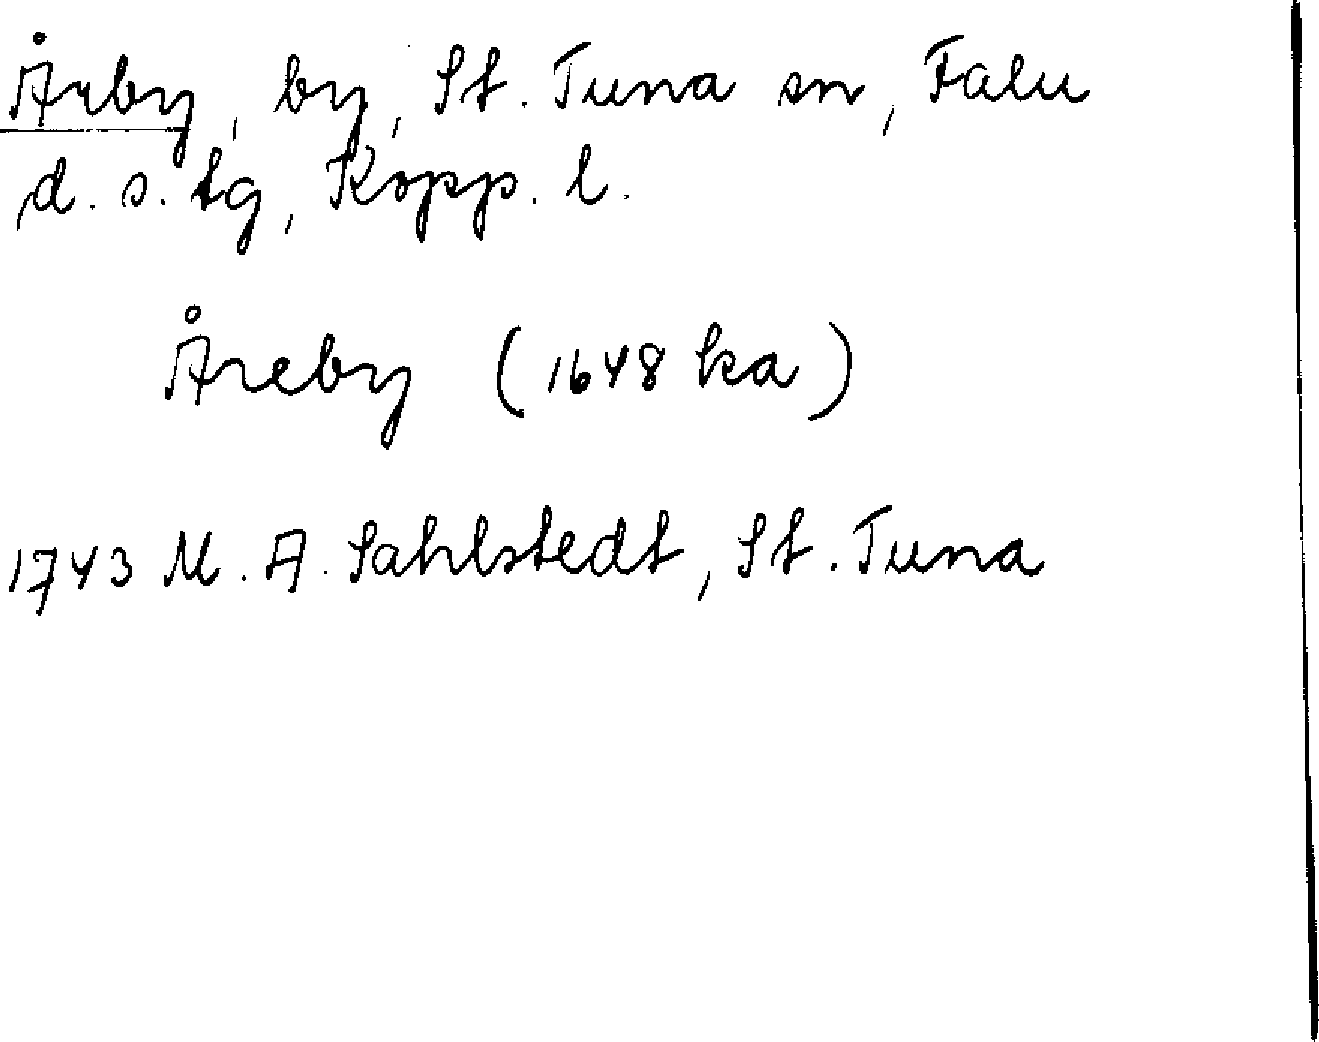 Årby, by, St. Tuna sn, Falu
d. s. tg, Kopp. l.
Åreby (1648 ka)
1743 M. A. Sahlstedt, St. Tuna